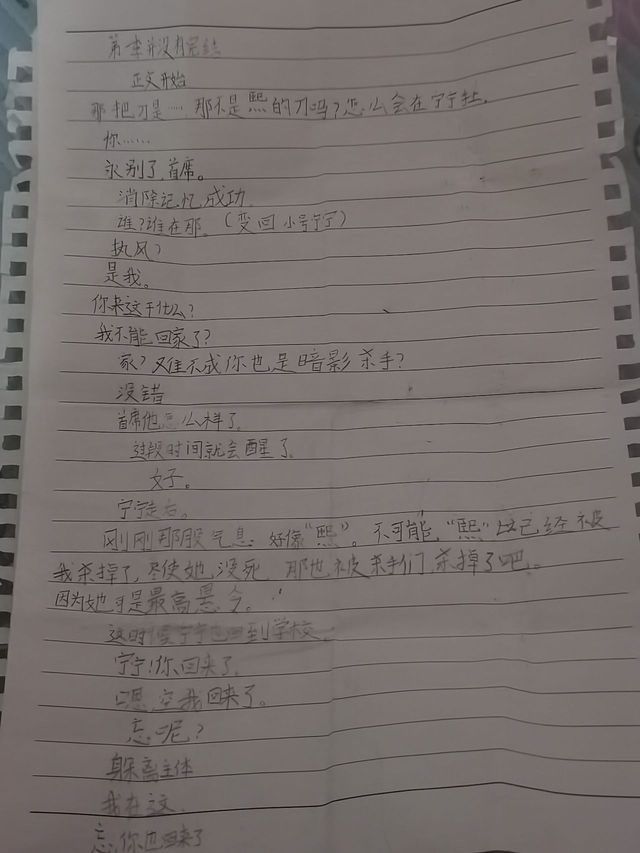 第一季并没有完结
正文开始
那把刀是……那不是熙的刀吗?怎么会在宁宁
你……
永别了,首席。
消除记忆成功
谁?谁在那。(变回小号宁宁)
执风?
是我。
你来这干什么?
我不能回家了?
家?难不成你也是暗影杀手?
没错
首席他怎么样了。
过段时间就会醒了。
好。
宁宁走后。
刚刚那股气息 好像“熙”。不可能,“熙”已经被
我杀掉了,尽使她没死 那也被杀手们杀掉了吧。
因为她可是最高悬令。
这时宁宁也回到学校。
宁宁!你回来了。
嗯,空我回来了。
忘呢?
躲离主体
我在这
忘,你也回来了